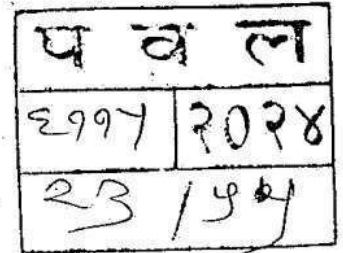 प व ल
६११५ २०२४
२३ / ५५